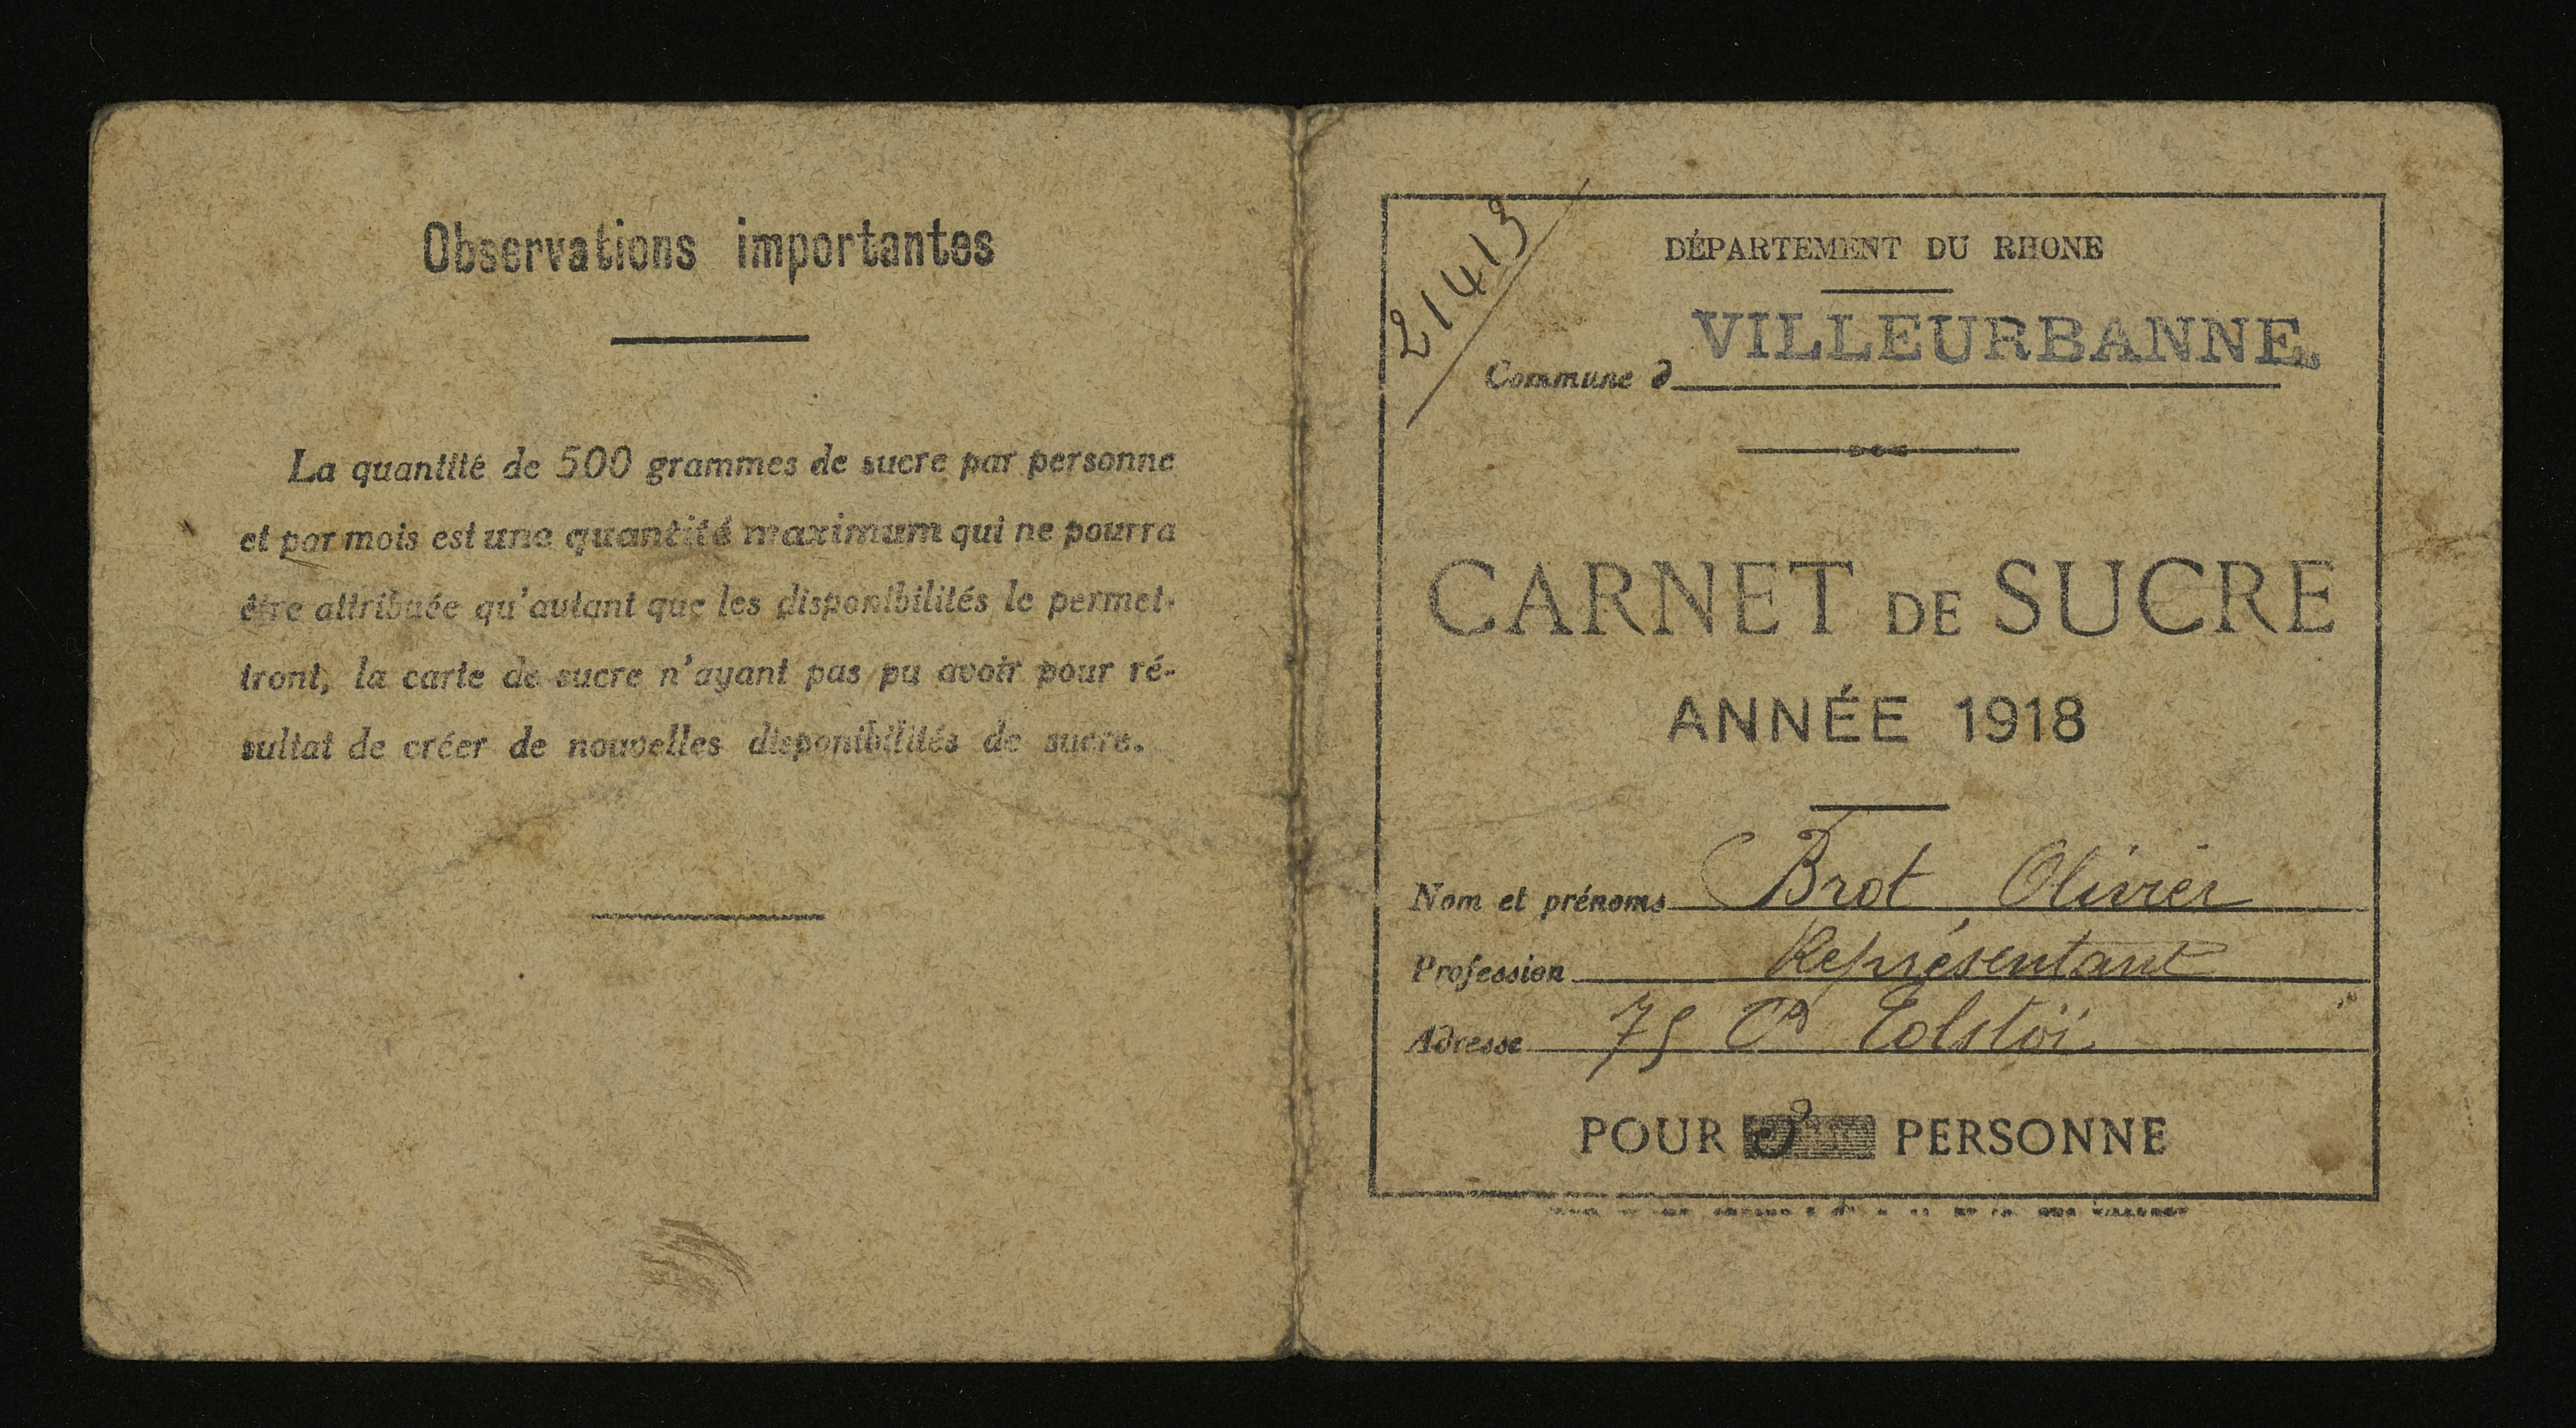 Observations importantes
La quantité de 500 grammes de sucre par personne
et par mois est une quantité maximum qui ne pourra
être attribuée qu'autant que les disponibilités le permet-
tront, la carte de sucre n'ayant pas pu avoir pour ré-
sultat de créer de nouvelles disponibilités de sucre.
21413
DÉPARTEMENT DU RHONE
Commune d VILLEURBANNE
CARNET DE SUCRE
ANNÉE 1918
Nom et prénoms Brot Olivier
Profession Représentant
Adresse 75 Crs Tolstoï
POUR 2 PERSONNE